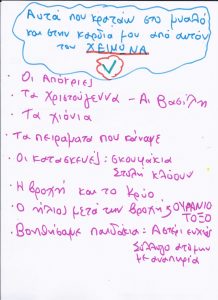 Αυτά που κρατάω στο μυαλό
και στην καρδιά μου από αυτόν
τον ΧΕΙΜΩΝΑ
• Οι Απόκριες
• Τα Χριστούγεννα - Αι Βασίλη
• Τα χιόνια
• Τα πειράματα που κάναμε
• Οι κατασκευές: σκουφάκια
Στολή κλόουν
• Η βροχή και το κρύο
• Ο ήλιος μετά την βροχή ΟΥΡΑΝΙΟ
ΤΟΞΟ
• Βοηθήσαμε παιδάκια: Αστέρι ευχής
Σύλλογο ατόμων
με αναπηρία